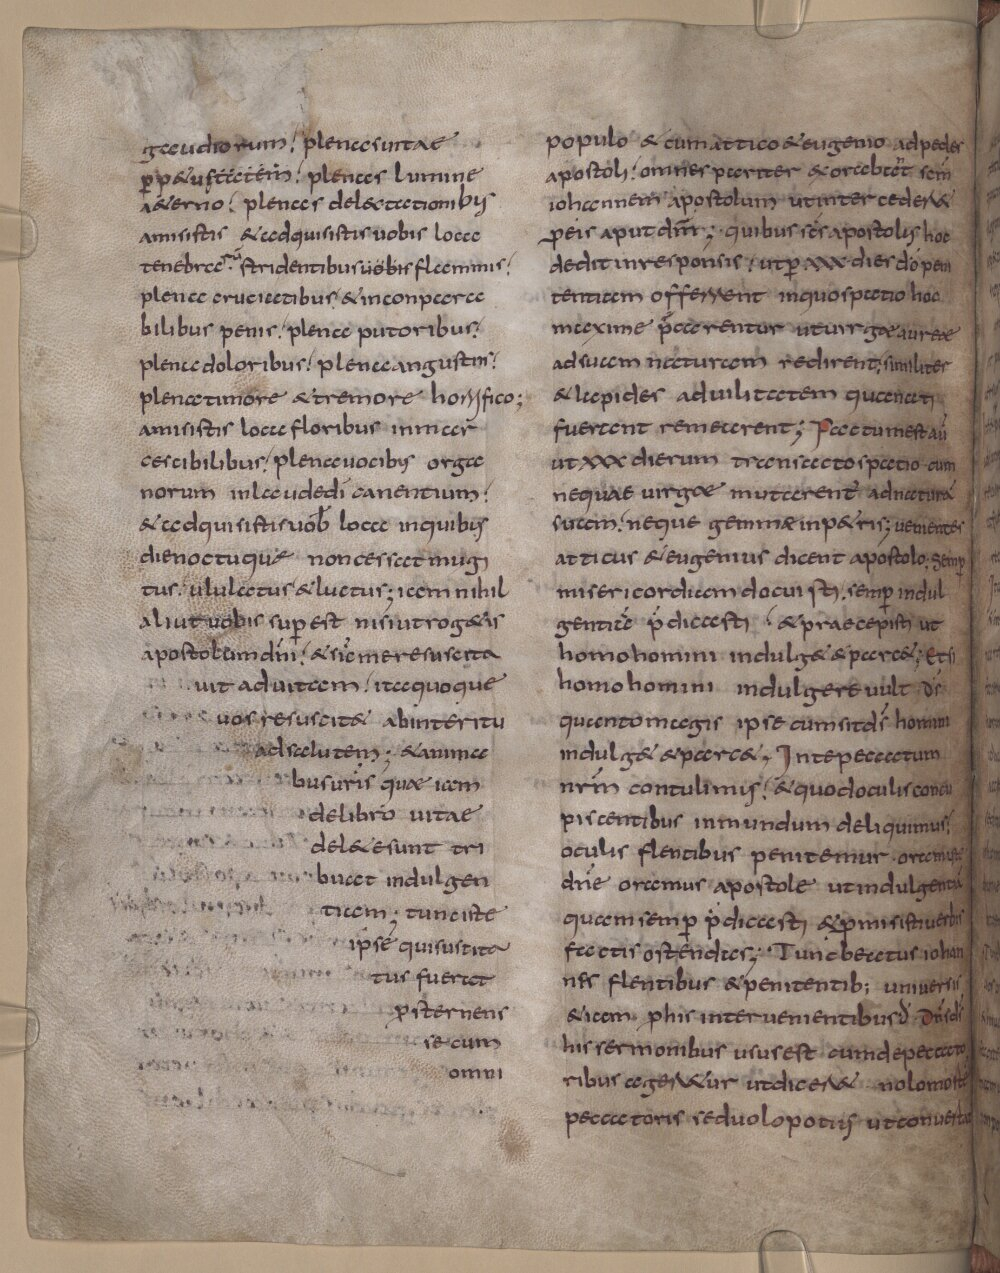 gaudiorum! plenas vitae
ꝑpetuitatem! plenas lumine
aeterno! plenas delectationibus
amisistis & adquisistis uobis loca
tenebrarū stridentibus uobis flammis!
plena cruciatibus & inconpara
bilibus penis! plena putoribus!
plena doloribus! plena angustiis!
plena timore & tremore horrifico;
amisistis loca floribus inmar
cescibilibus! plena uocibus orga
norum in laude di canentium!
& adquisistis uob loca in quibus
die noctuque non cessat mugi
tus. ululatus & luctus; iam nihil
aliut uobis suꝑest nisi ut rogetis
apostolum dni! & sic me resuscita
uit ad uitam! ita quoque
uos resuscitet ab interitu
ad salutem; & anima
bus uris quae iam
de libro uitae
deletae sunt tri
buat indulgen
tiam; tunc iste
ipse qui suscita
tus fuerat
ꝓsternens
se cum
omni
populo & cum attico & eugenio ad pedes
apostoli! omnes pariter & orabant scm
iohannem apostolum ut intercederet
ꝓ eis aput dnm; quibus scs apostolus hoc
dedit in responsis! ut ꝑ xxx dies dō peni
tentiam offerrent in quo spatio hoc
maxime p̄carentur ut uirgae aureae
ad suam naturam redirent; similiter
& lapides ad uilitatem qua nati
fuerant remearent; Factum est aū
ut xxx dierum transacto spatio cum
neque uirgae mutarent ad naturā
suam! neque gemmae in petris; uenientes
atticus & eugenius dicent apostolo; semꝑ
misericordiam docuisti, semꝑ indul
gentiā p̄dicasti! & praecepisti ut
homo homini indulget & parcat; Et si
homo homini indulgere uult ds
quanto magis ipse cum sit ds homini
indulget & parcat; In te peccatum
nrm contulimus! & quod oculis concu
piscentibus in mundum deliquimus!
oculis flentibus penitemur oramus te
dne oramus apostole ut indulgentiā
quam semꝑ p̄dicasti & ꝓmisisti uerbis
factis ostendas; Tunc beatus iohan
nes flentibus & penitentib; uniuersis
& iam p his interuenientibus d Dns ds
his sermonibus usus est cum de pecca
toribus ageretur ut diceret nolo mortē
peccatoris sed uolo potius ut conuerta